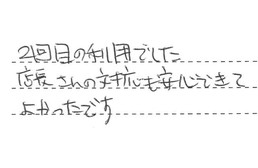 2回目の利用でした
店長さんの対応も安心できて
よかったです